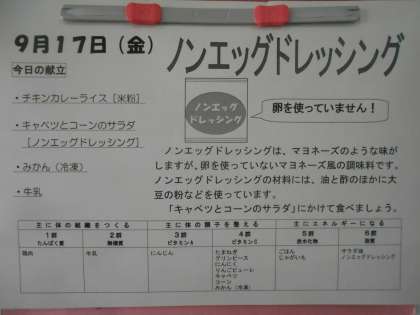 9月17日（金）
ノンエッグドレッシング
今日の献立
・チキンカレーライス［米粉］
・キャベツとコーンのサラダ
［ノンエッグドレッシング］
・みかん（冷凍）
・牛乳
ノンエッグ
ドレッシング
卵を使っていません！
ノンエッグドレッシングは、マヨネーズのような味が
しますが、卵を使っていないマヨネーズ風の調味料です。
ノンエッグドレッシングの材料には、油と酢のほかに大
豆の粉などを使っています。
「キャベツとコーンのサラダ」にかけて食べましょう。
主に体の組織をつくる 主に体の調子を整える 主にエネルギーになる
1群 2群 3群 4群 5群 6群
たんぱく質 無機質 ビタミンA ビタミンC 炭水化物 脂質
鶏肉 牛乳 にんじん たまねぎ ごはん サラダ油
グリンピース じゃがいも ノンエッグドレッシング
にんにく
りんごピューレ
キャベツ
コーン
みかん（冷凍）